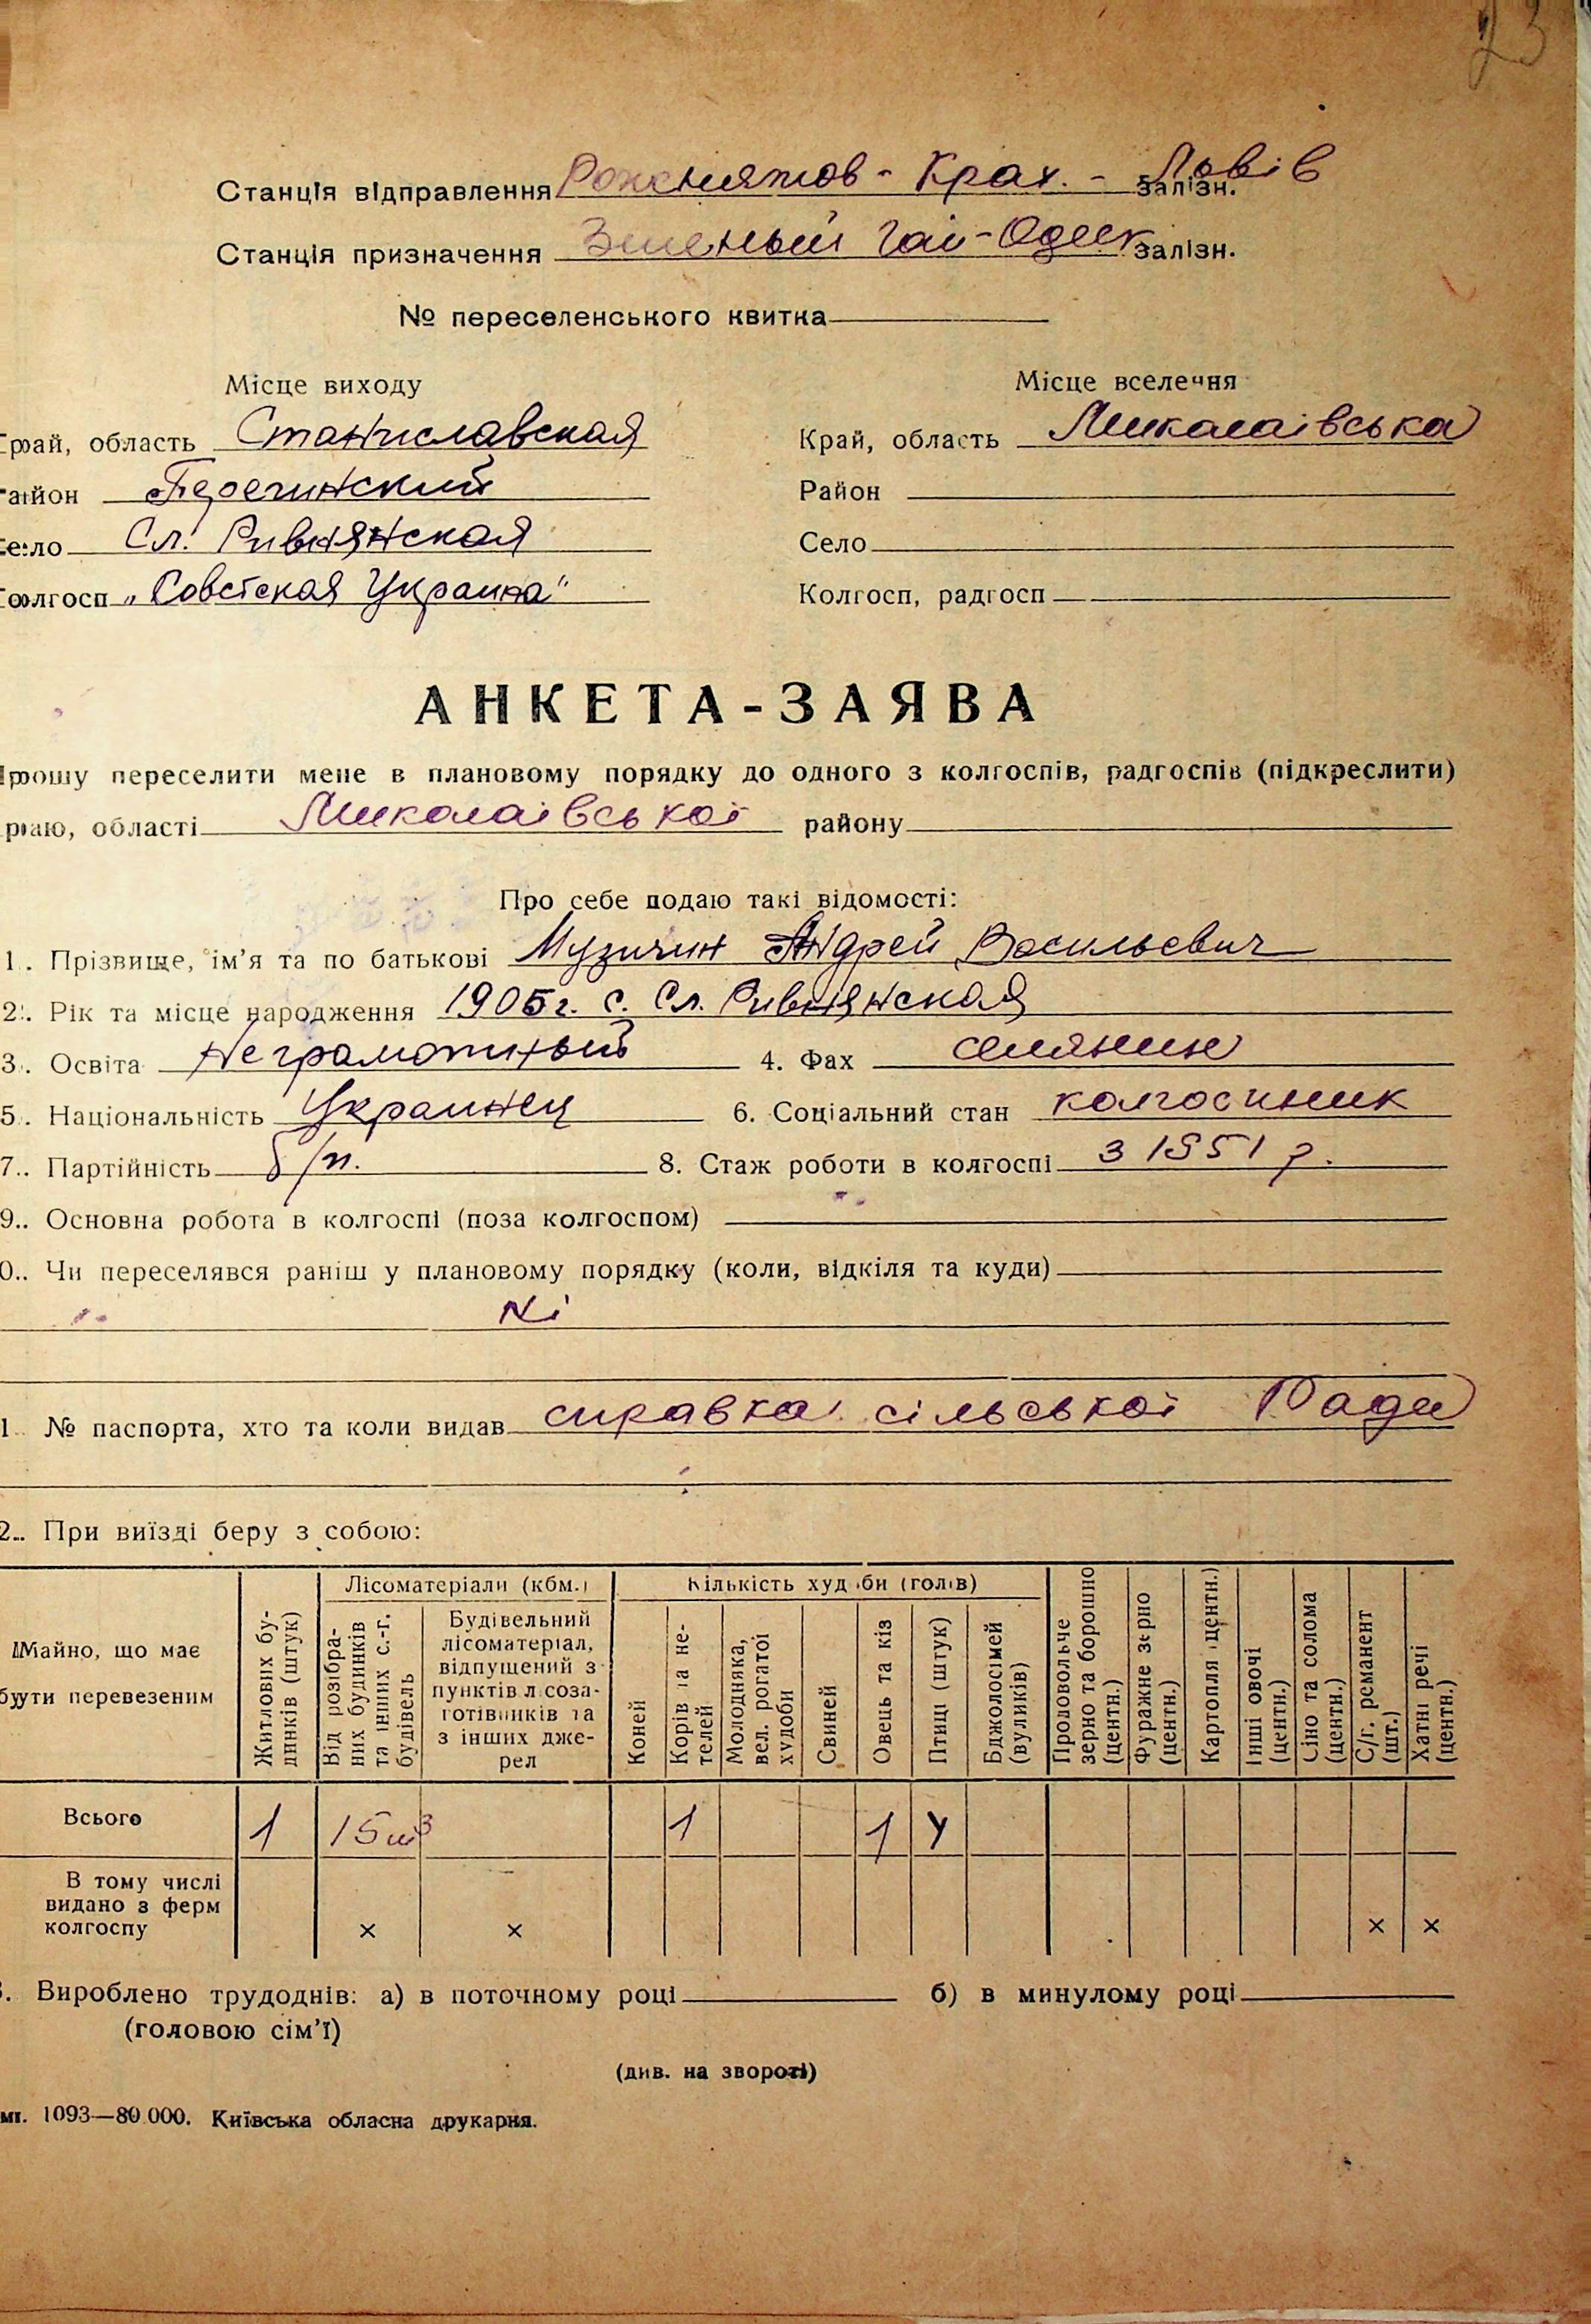 23
Станція відправлення Рожнятов - Крех. - Львів залізн.
Станція призначення Зеленый Гай - Одеск залізн.
№ переселенського квитка
Місце виходу
Край, область Станиславская
Район Перегинский
Село Сл. Ривнянская
Колгосп „Советская Украина"
Місце вселення
Край, область Миколаівська
Район
Село
Колгосп, радгосп
АНКЕТА-ЗАЯВА
Прошу переселити мене в плановому порядку до одного з колгоспів, радгоспів (підкреслити)
краю, області Миколаівської району
Про себе подаю такі відомості:
1. Прізвище, ім'я та по батькові Музичин Андрей Васильевич
2. Рік та місце народження 1905 г. с. Сл. Ривнянская
3. Освіта Неграмотный 4. Фах селянин
5. Національність Украинец 6. Соціальний стан колгоспник
7. Партійність б/п. 8. Стаж роботи в колгоспі з 1951 р.
9. Основна робота в колгоспі (поза колгоспом)
0. Чи переселявся раніш у плановому порядку (коли, відкіля та куди)
Ні
1 № паспорта, хто та коли видав справка сільської Ради
2. При виїзді беру з собою:
Майно, що має бути перевезеним
Житлових будинків (штук)
Лісоматеріали (кбм.)
Від розібраних будинків та інших с.-г. будівель
Будівельний лісоматеріал, відпущений з пунктів лісозаготівників та з інших джерел
Кількість худоби (голів)
Коней
Корів та нетелей
Молодняка, вел. рогатої худоби
Свиней
Овець та кіз
Птиці (штук)
Бджолосімей (вуликів)
Продовольче зерно та борошно (центн.)
Фуражне зерно (центн.)
Картопля (центн.)
Інші овочі (центн.)
Сіно та солома (центн.)
С/г. реманент (шт.)
Хатні речі (центн.)
Всього 1 15 м³ 1 1 4
В тому числі видано з ферм колгоспу × × × ×
3. Вироблено трудоднів: а) в поточному році б) в минулому році
(головою сім'ї)
(див. на звороті)
1093—80.000. Київська обласна друкарня.